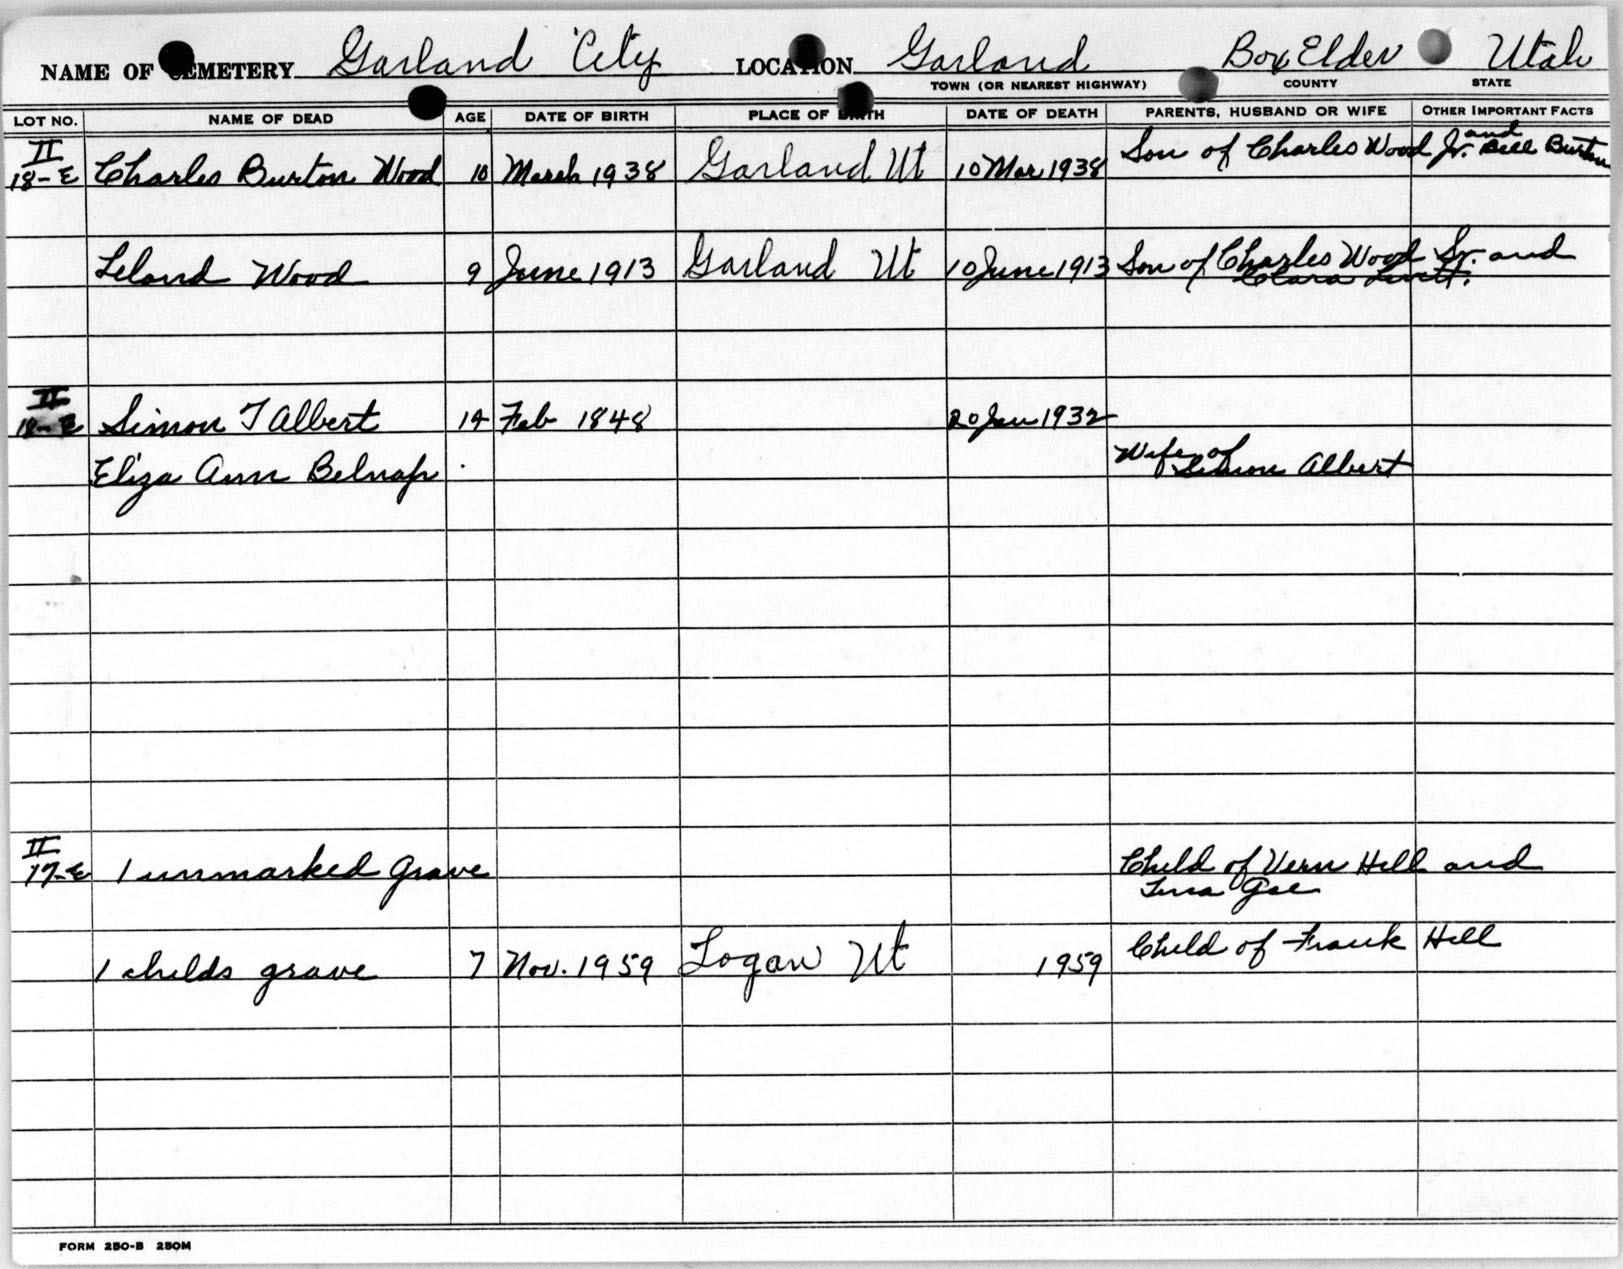 NAME OF CEMETERY Garland City LOCATION Garland Box Elder Utah
TOWN (OR NEAREST HIGHWAY) COUNTY STATE
LOT NO. NAME OF DEAD AGE DATE OF BIRTH PLACE OF BIRTH DATE OF DEATH PARENTS, HUSBAND OR WIFE OTHER IMPORTANT FACTS
II
18-E Charles Burton Wood 10 March 1938 Garland Ut 10 Mar 1938 Son of Charles Wood Jr. and Bell Burton
Leland Wood 9 June 1913 Garland Ut 10 June 1913 Son of Charles Wood Sr. and
Clara
II
18-E Simon T Albert 14 Feb 1848 20 Jan 1932
Eliza Ann Belnap Wife of Simon Albert
II
17-E 1 unmarked grave Child of Vern Hill and
Gae
1 childs grave 7 Nov. 1959 Logan Ut 1959 Child of Frank Hill
FORM 250-B 250M